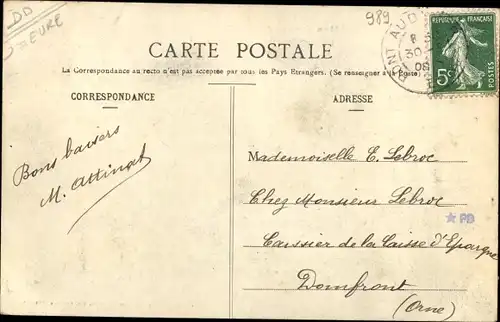 DD
EURE
989
CARTE POSTALE
La Correspondance au recto n'est pas acceptée par tous les Pays Etrangers. (Se renseigner à la Poste)
CORRESPONDANCE
ADRESSE
PONT AUD
30
08
RÉPUBLIQUE FRANÇAISE
5c
POSTES
Bons baisers
M. Attinat
Mademoiselle E. Lebroc
Chez Monsieur Lebroc
Caissier de la Caisse d'Epargne
Domfront
(Orne)
PD